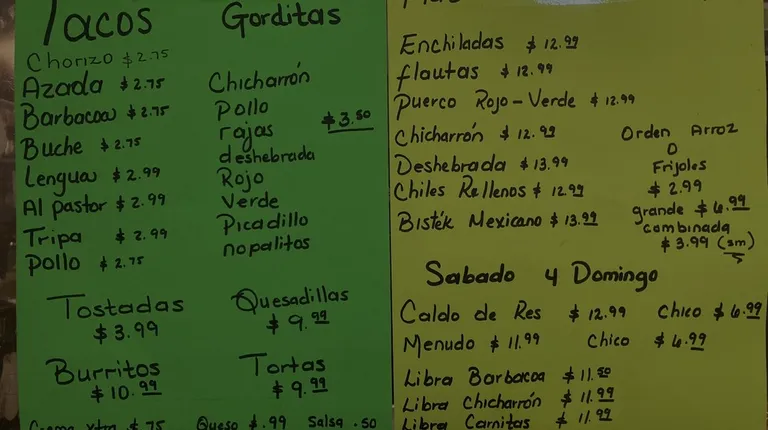 Tacos
Chorizo $2.75
Azada $2.75
Barbacoa $2.75
Buche $2.75
Lengua $2.99
Al pastor $2.99
Tripa $2.99
Pollo $2.75
Gorditas
Chicharrón
Pollo
rajas $3.50
deshebrada
Rojo
Verde
Picadillo
nopalitos
Tostadas
$3.99
Quesadillas
$9.99
Burritos
$10.99
Tortas
$9.99
Crema xtra $.75 Queso $.99 Salsa .50
Enchiladas $12.99
flautas $12.99
Puerco Rojo-Verde $12.99
Chicharrón $12.99
Deshebrada $13.99
Chiles Rellenos $12.99
Bisték Mexicano $13.99
Orden Arroz
O
Frijoles
$2.99
grande $6.99
combinada
$3.99 (sm)
Sabado y Domingo
Caldo de Res $12.99 Chico $6.99
Menudo $11.99 Chico $6.99
Libra Barbacoa $11.50
Libra Chicharrón $11.99
Libra Carnitas $11.99